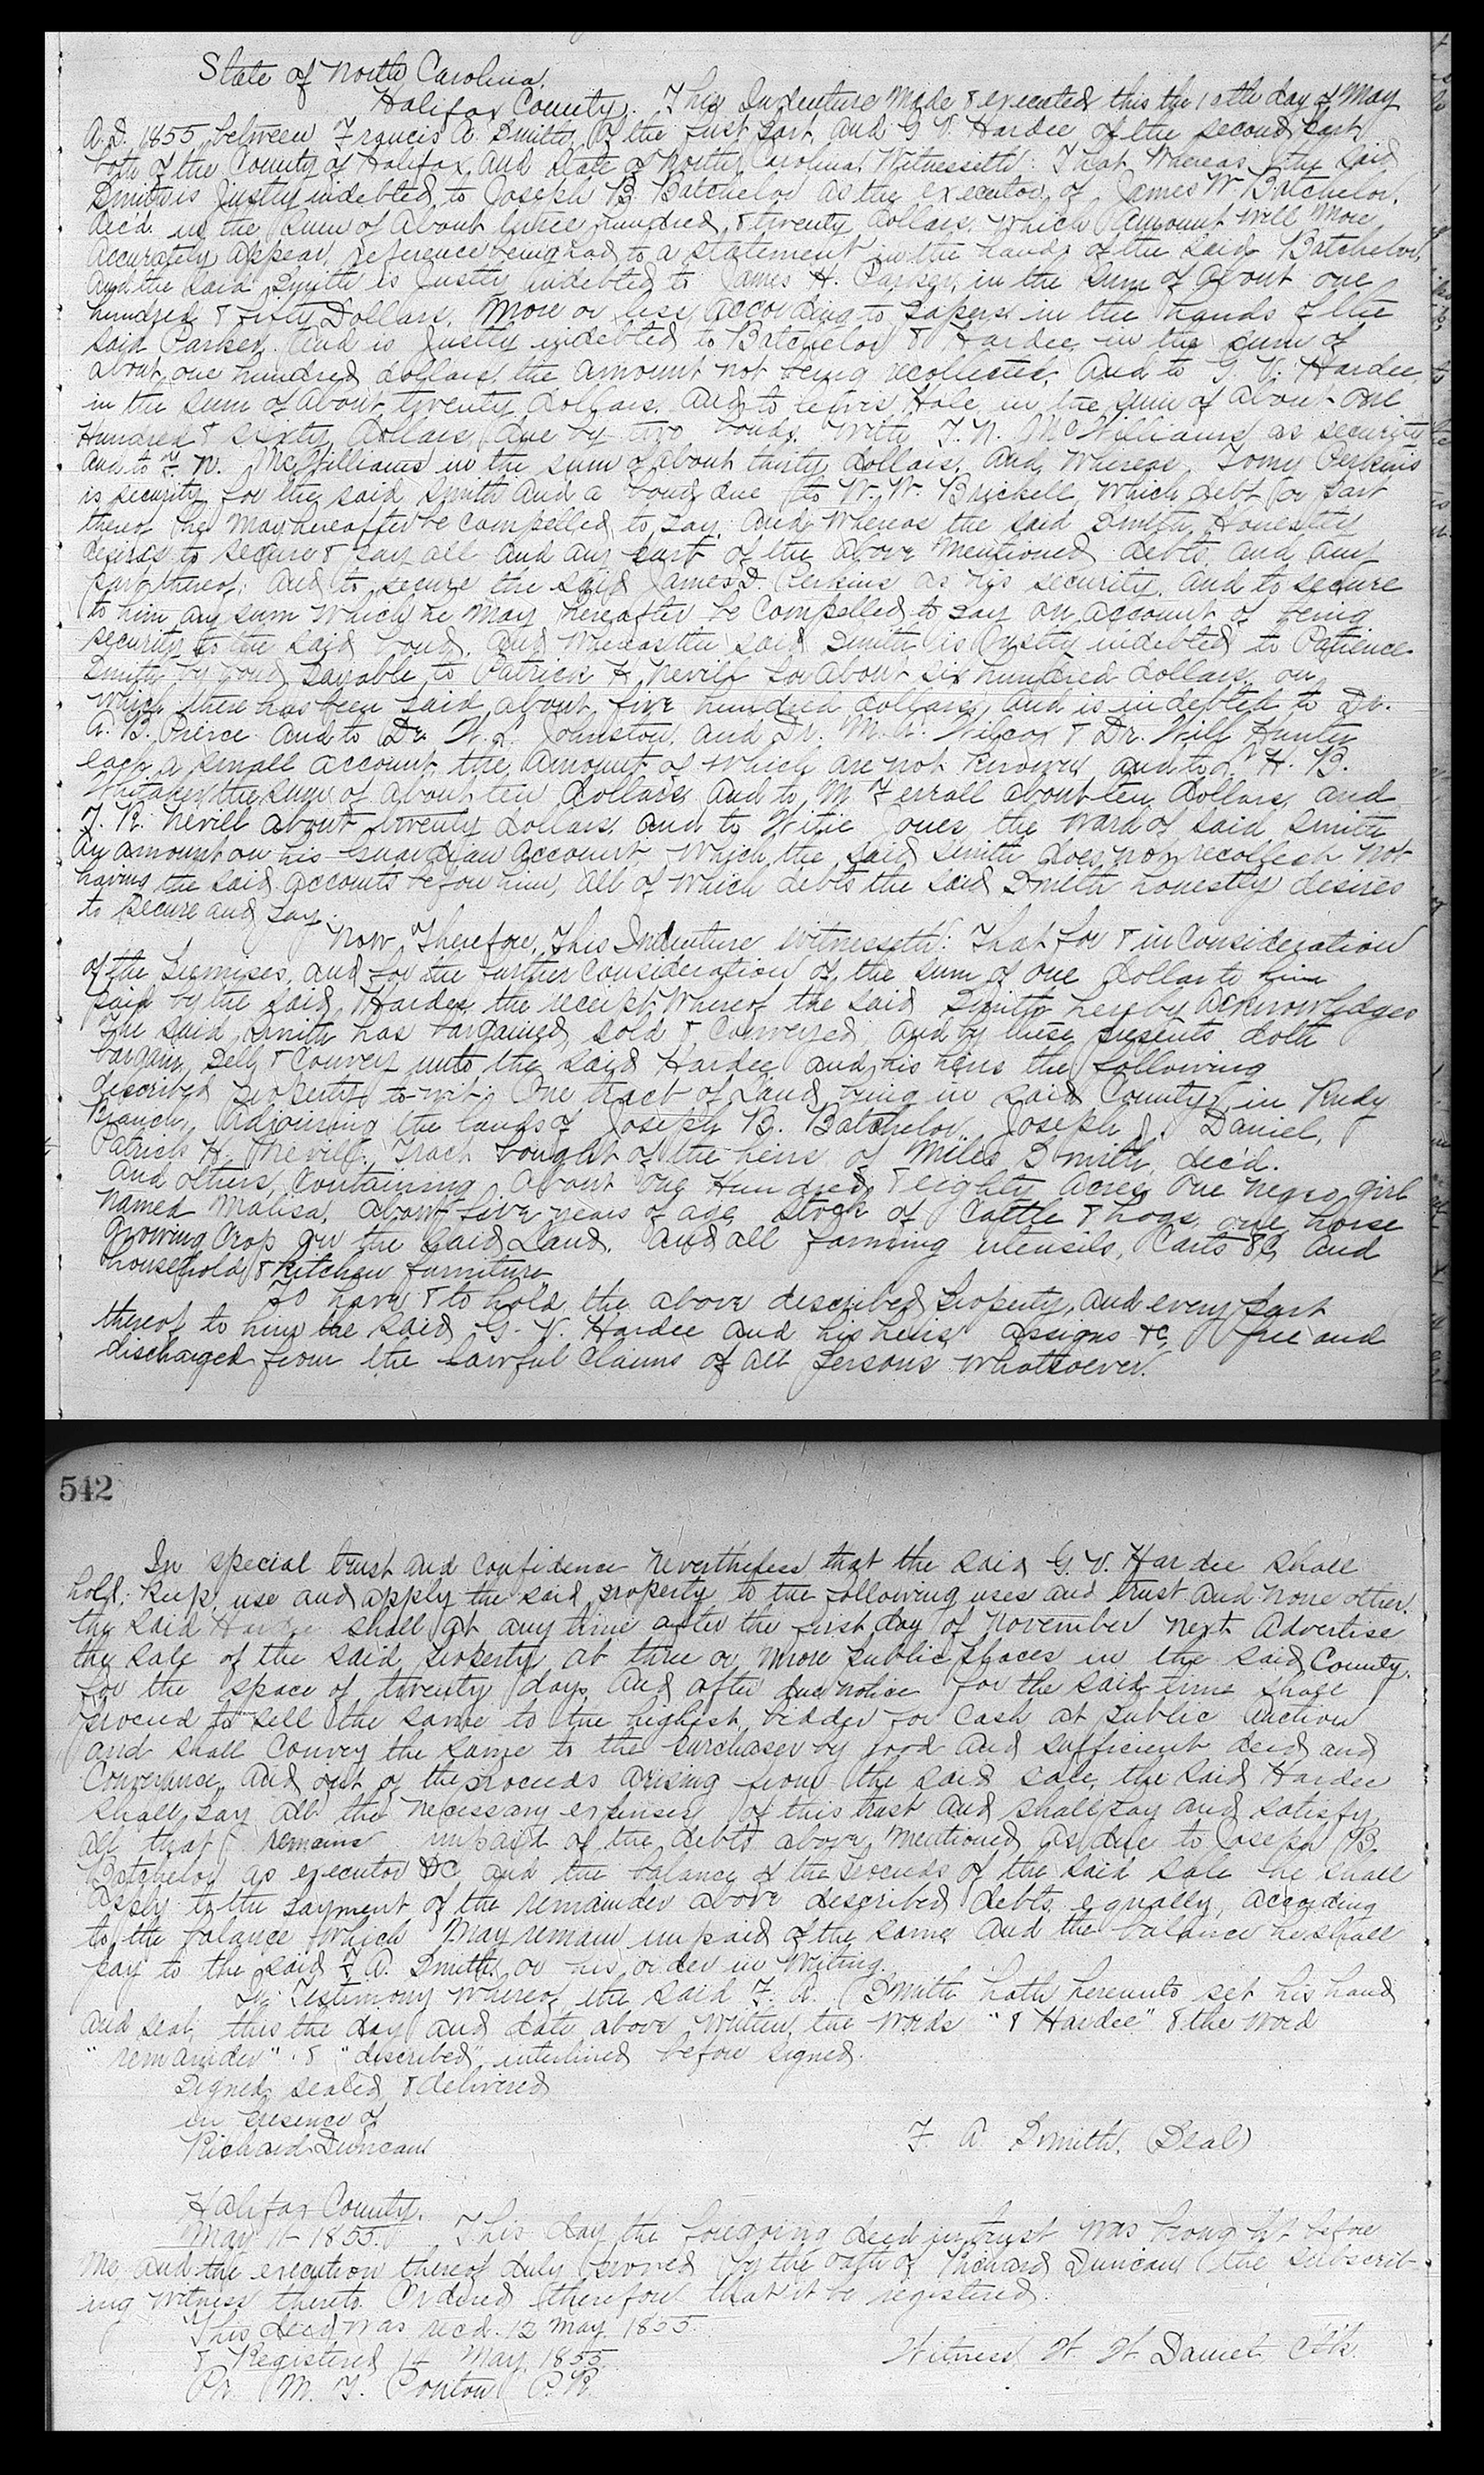 State of North Carolina,
Halifax County. This Indenture Made & executed this the 10th day of May
A.D. 1855, between Francis A. Smith, of the first part, and G. V. Hardee of the second part
both of the County of Halifax and State of North Carolina, Witnesseth: That Whereas the said
Smith is Justly indebted to Joseph B. Batchelor as the executor of James W. Batchelor,
dec'd. in the sum of about three hundred & twenty dollars, which Amount will more
Accurately appear, reference being had to a statement in the hands of the said Batchelor,
And the said Smith is Justly indebted to James H. Parker, in the sum of about one
hundred & fifty Dollars, More or less, according to papers in the hands of the
said Parker. And is Justly indebted to Batchelor & Hardee in the sum of
about one hundred dollars, the amount not being recollected, And to G. V. Hardee,
in the sum of about twenty dollars. And to Lewis Hale, in the sum of about one
Hundred & sixty dollars, due by two bonds, with T. N. McWilliams as security
And to T. N. McWilliams in the sum of about thirty dollars. And Whereas, Tomy Perkins
is security for the said Smith and a bond due to W. W. Brickell, which debt or part
thereof he may hereafter be compelled to pay. And whereas the said Smith, Honestly
desires to secure & pay all and any part of the above mentioned debts and any
part thereof: and to secure the said James D. Perkins as his security, and to secure
to him any sum which he may hereafter be compelled to pay on account of being
security to the said bond. And Whereas the said Smith is Justly indebted to Patience
Smith by bond payable to Patrick H. Nevill for about six hundred dollars, on
which there has been paid about five hundred dollars, and is indebted to Dr.
A. B. Pierce and to Dr. W. L. Johnston, and Dr. M. A. Wilcox & Dr. Will Hunter
each a small account, the amount of which are not known and to H. B.
Whitaker the sum of about ten dollars and to M. Ferrall about ten dollars, and
J. R. Nevill about twenty dollars, and to Witie Jones, the ward of said Smith
An amount on his Guardian account which the said Smith does not recollect not
having the said accounts before him, all of which debts the said Smith honestly desires
to secure and pay.
Now, Therefore, This Indenture Witnesseth: That for & in consideration
of the premises, and for the further consideration of the sum of one dollar to him
paid by the said Hardee, the receipt whereof the said Smith hereby acknowledges
the said Smith has bargained, sold & conveyed, and by these presents doth
bargain, sell & convey unto the said Hardee and his heirs the following
described property to-wit: One tract of Land, being in said County, in Rudy
Branch, Adjoining the lands of Joseph B. Batchelor, Joseph J. Daniel, &
Patrick H. Nevill, Tract bought of the heirs of Miles Smith, dec'd.
And others, containing about one Hundred & eighty acres, One negro girl
named Malisa, about five years of age, stock of Cattle & hogs, one horse
Growing Crop on the said Land, and all farming utensils, Carts &C, and
household & Kitchen furniture
To have & to hold the above described property, and every part
thereof to him the said G. V. Hardee and his heirs assigns &C, free and
discharged from the lawful claims of all persons whatsoever.
542
In special trust and confidence nevertheless that the said G. V. Hardee shall
hold, keep, use and apply the said property to the following uses and trust and none other.
the said Hardee shall at any time after the first day of November next Advertise
the sale of the said property at three or more public places in the said County.
for the space of twenty days, And after due notice for the said time shall
proceed to sell the same to the highest bidder for cash at public auction
and shall convey the same to the purchaser by good and sufficient deed and
Conveyance, and out of the proceeds arising from the said sale, the said Hardee
shall pay all the necessary expenses of this trust and shall pay and satisfy
all that remains unpaid of the debts above mentioned as due to Joseph B.
Batchelor as executor &C and the balance of the proceeds of the said sale he shall
apply to the payment of the remainder above described debts, equally, according
to the balance which May remain unpaid of the same and the balance he shall
pay to the said F. A. Smith, or his order in writing.
In Testimony Whereof the said F. A. Smith hath hereunto set his hand
and seal, this the day and date above written, the words "& Hardee" & the word
"remainder" & "described", interlined before signed.
Signed, sealed & delivered
in presence of
Richard Duncan
F A Smith, (Seal)
Halifax County.
May 11 1855. This day the foregoing deed in trust was brought before
Me, and the execution thereof duly proved by the oath of Richard Duncan the subscrib-
ing witness thereto. Ordered therefore that it be registered.
This deed was rec'd. 12 May 1855.
& Registered 14 May, 1855.
Witness, W. W. Daniel Clk.
Pr. M. T. Ponton P.R.